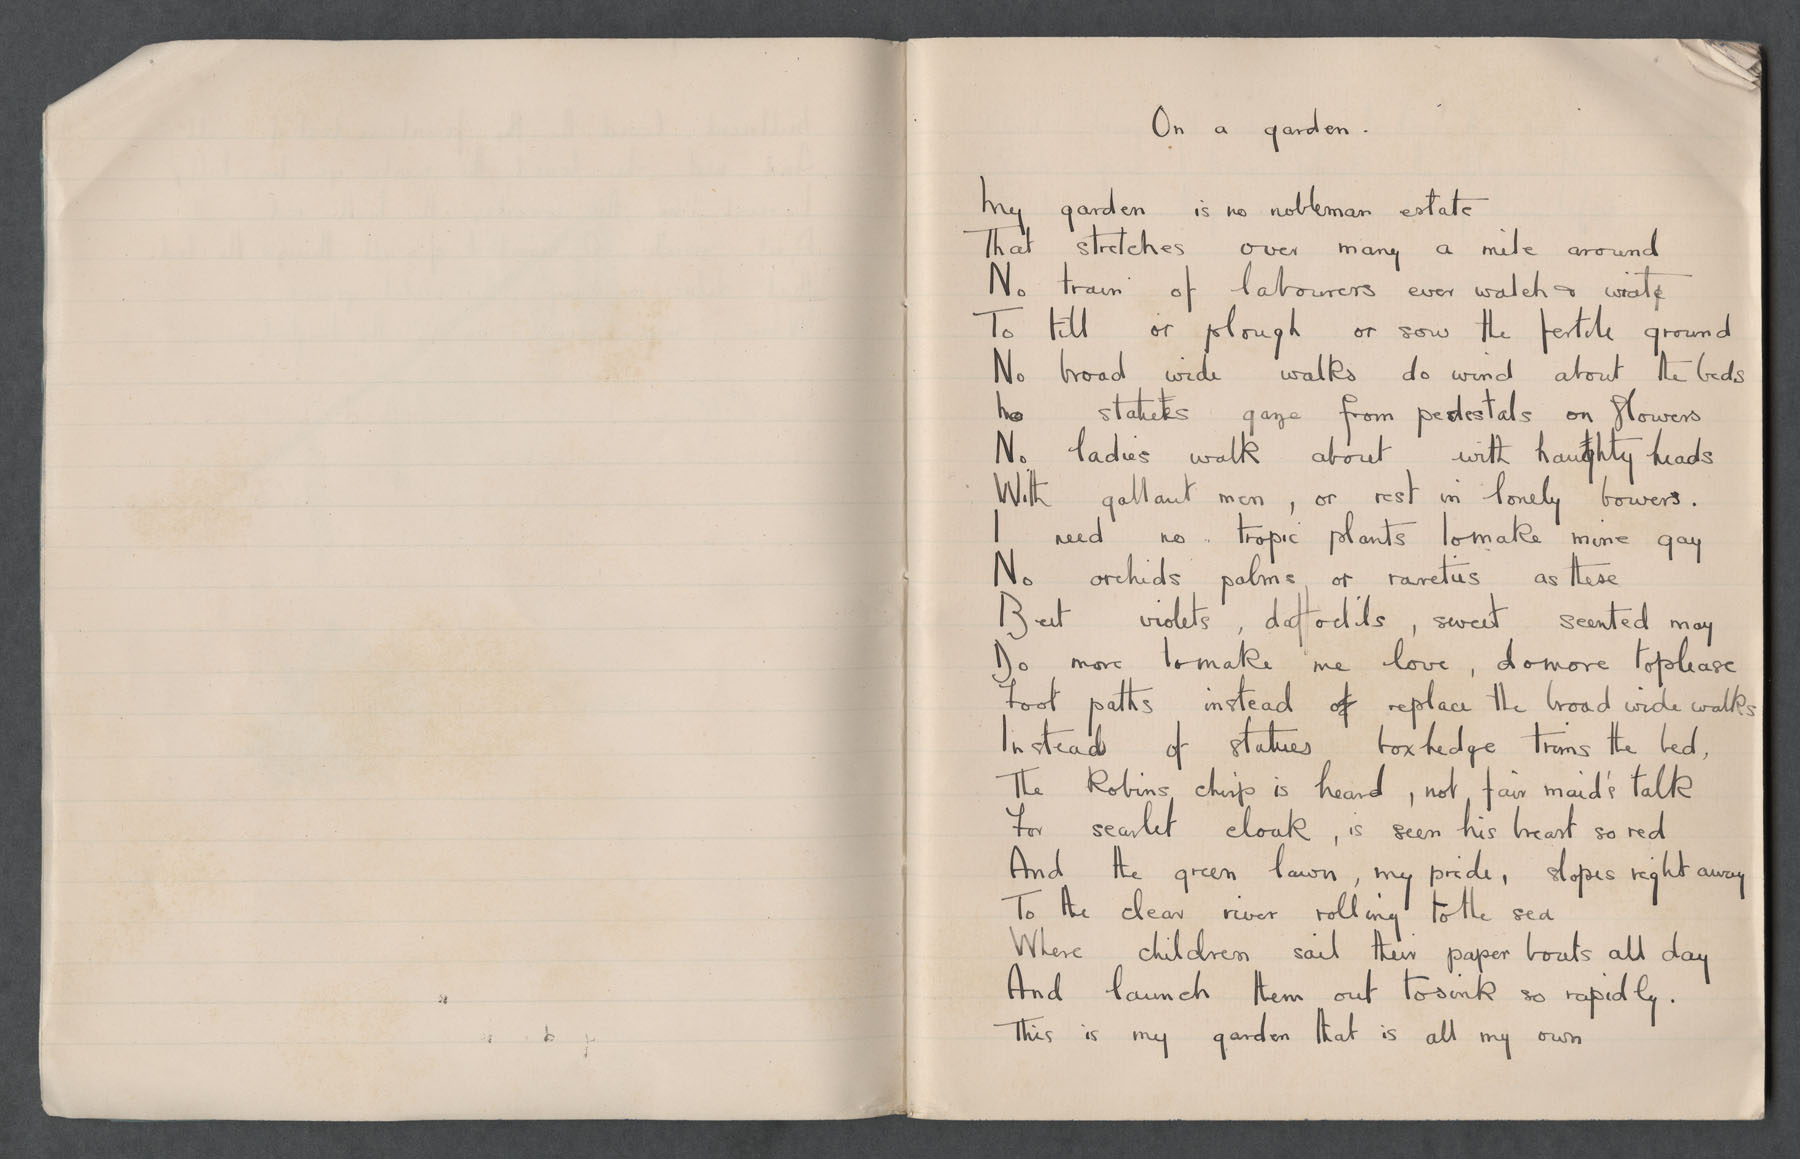 On a garden.
My garden is no nobleman estate
That stretches over many a mile around
No train of labourers ever watch & wait
To till or plough or sow the fertile ground
No broad wide walks do wind about the beds
No statues gaze from pedestals on flowers
No ladies walk about with haughty heads
With gallant men, or rest in lonely bowers.
I need no tropic plants to make mine gay
No orchids palms or rareties as these
But violets, daffodils, sweet scented may
Do more to make me love, do more to please
Foot paths instead of replace the broad wide walks
Instead of statues box hedge trims the bed,
The Robins chirp is heard, not fair maid's talk
For scarlet cloak, is seen his breast so red
And the green lawn, my pride, slopes right away
To the clear river rolling to the sea
Where children sail their paper boats all day
And launch them out to sink so rapidly.
This is my garden that is all my own